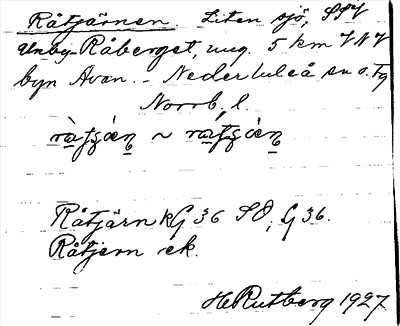 Råtjärnen. Liten sjö, SSV
Råberget, ung. 5 km VNV
byn Avan. - Nederluleå sn o. tg
Norrb. l.
Råtjärn kG 36 SO, G 36.
Råtjern ek.
HRutberg 1927